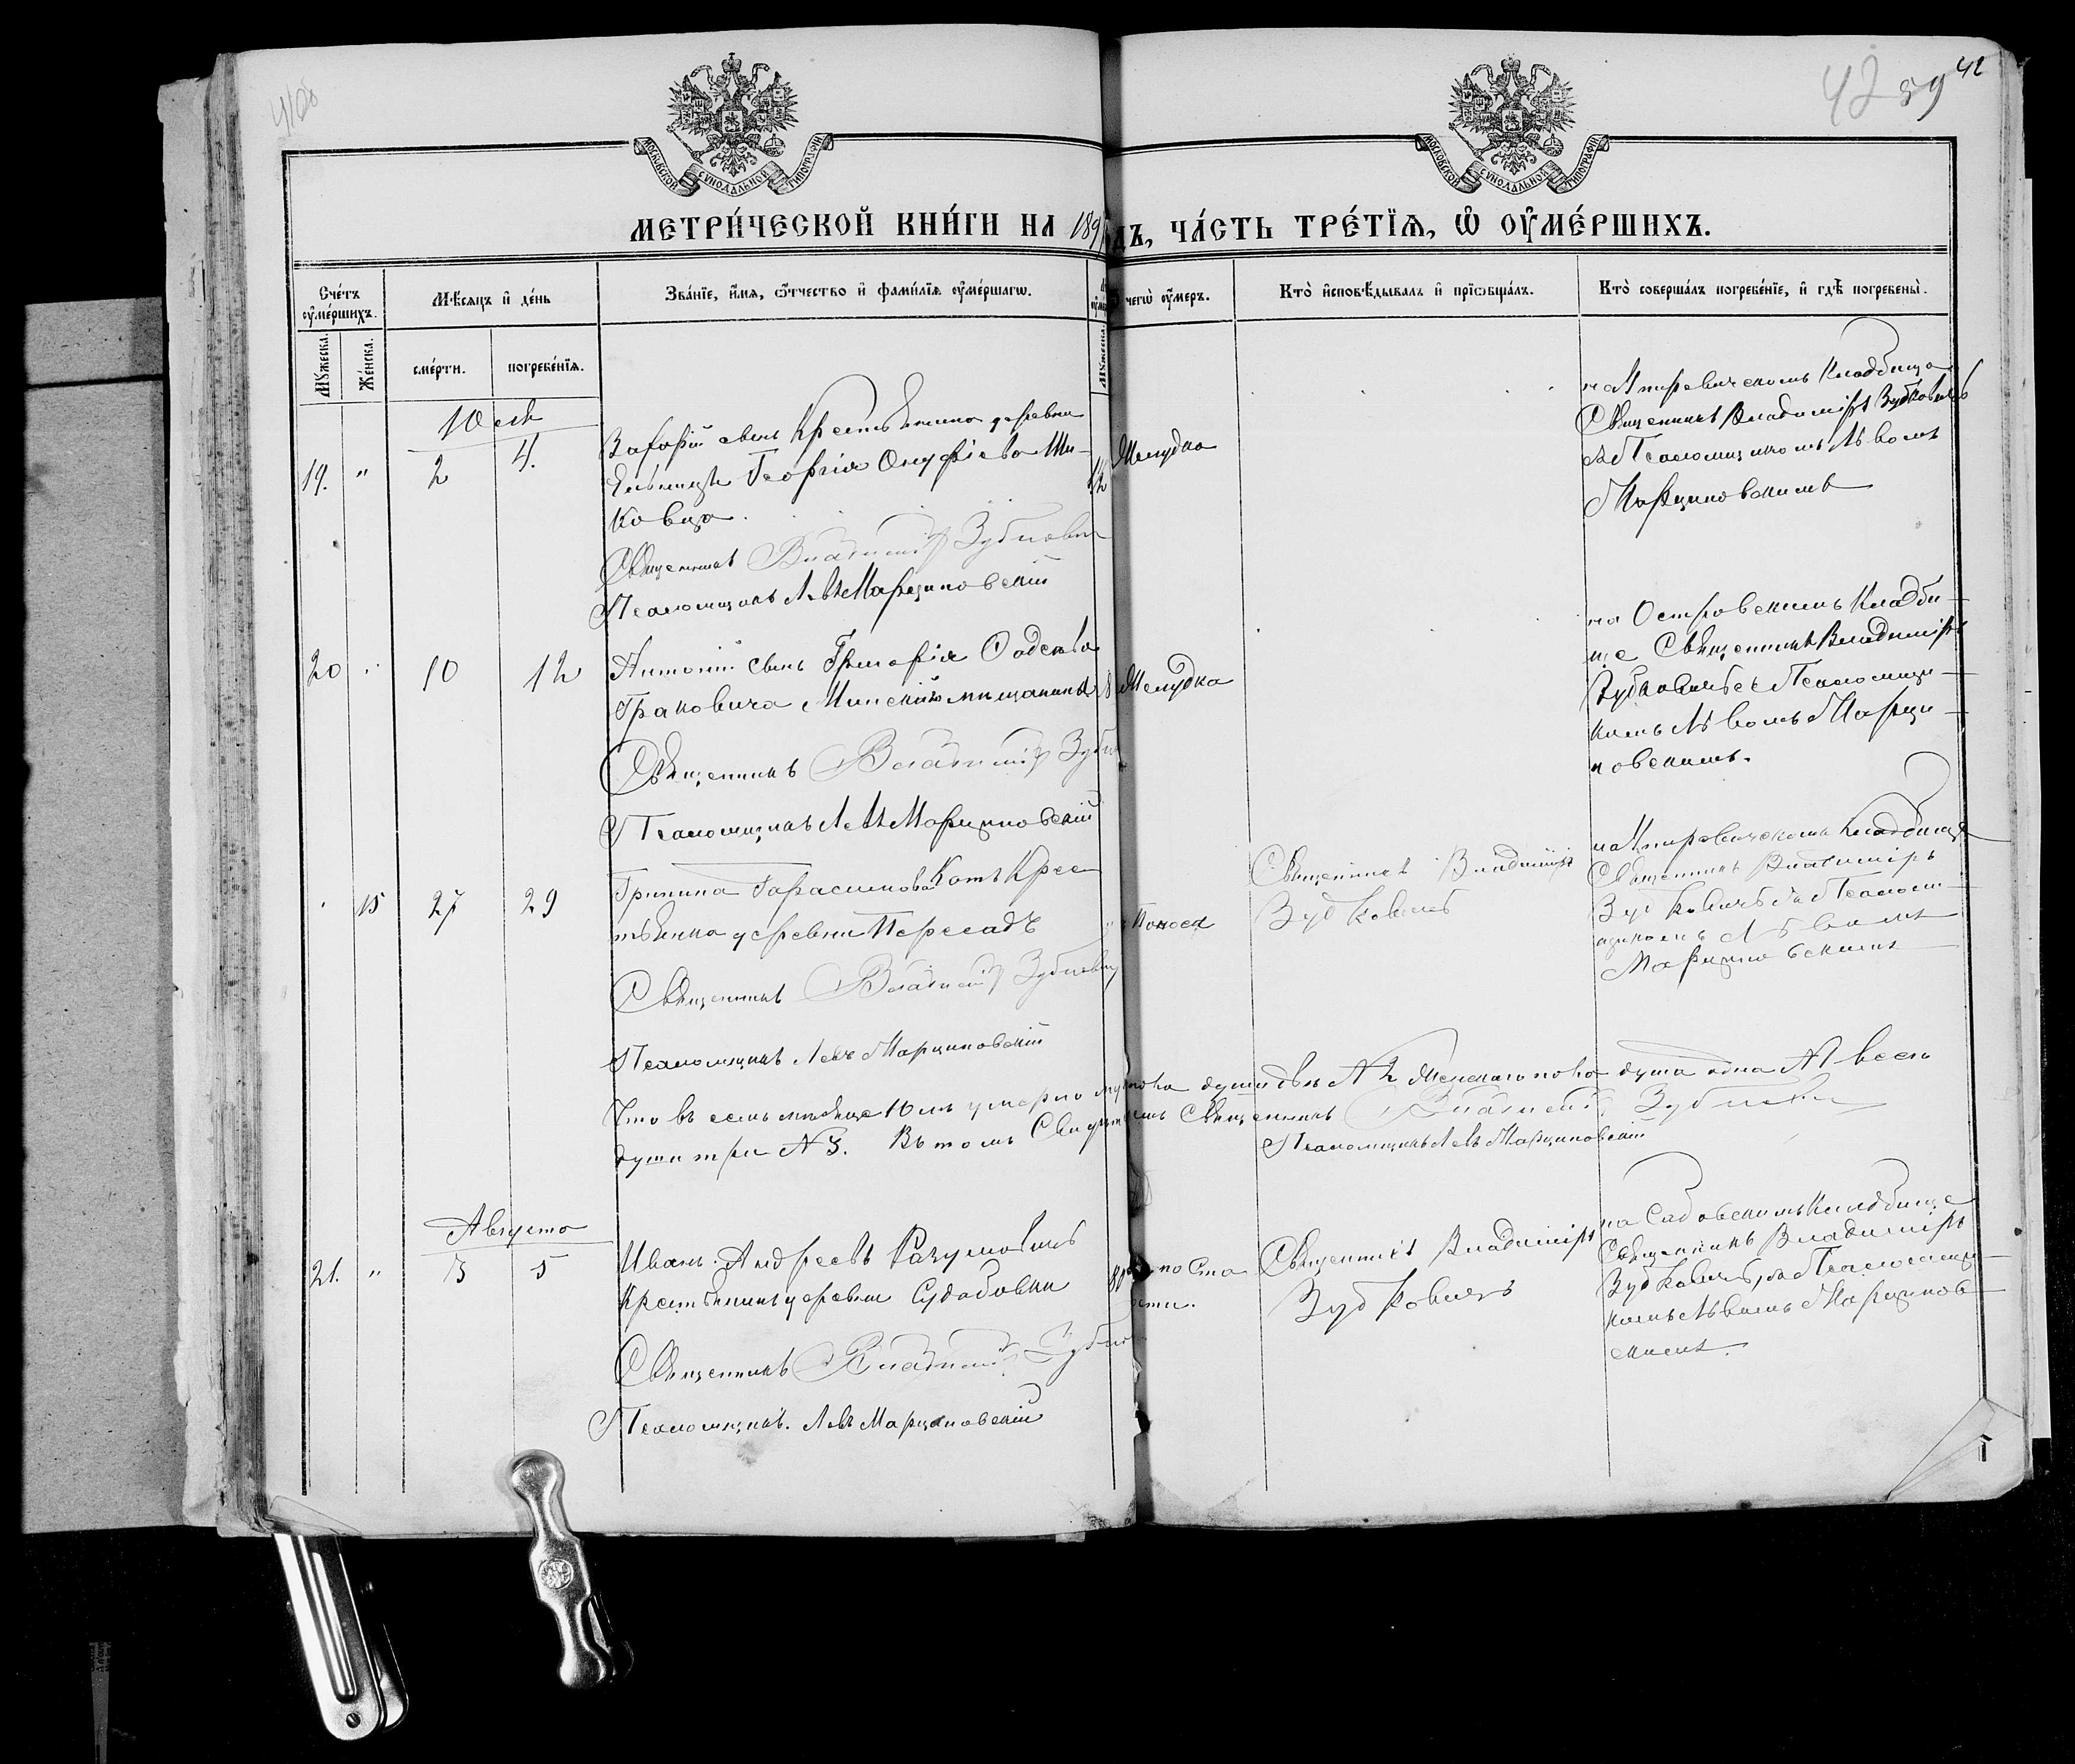 42 39 42
МОСКОВСКОЙ СУНОДАЛЬНОЙ ТИПОГРАФІИ
МОСКОВСКОЙ СУНОДАЛЬНОЙ ТИПОГРАФІИ
МЕТРИ́ЧЕСКОЙ КНИ́ГИ НА 189 ДЪ, ЧА́СТЬ ТРЕ́ТЇѦ, Ѡ҆ ОУ҆МЕ́РШИХЪ.
Сче́тъ оу҆ме́ршихъ.
Мѣ́сяцъ и҆ де́нь
Зва́нїе, и҆́мя, ѻ҆́тчество и҆ фами́лїя оу҆ме́ршагѡ.
чегѡ̀ оу҆́меръ.
Кто̀ и҆сповѣ́дывалъ и҆ прїѡбща́лъ.
Кто̀ соверша́лъ погребе́нїе, и҆ гдѣ̀ погребены̀.
Му́жеска.
Же́нска.
сме́рти.
погребе́нїя.
Му́жеска.
Юль
19. " 2 4.
Захорій сынъ Крестьянина деревни
Георгія Онуфріева Ши-
ковца.
Священникъ Владиміръ Зубковичъ
Псаломщикъ Левъ Марциновскій
Желудка
кладбище
Священникъ Владиміръ Зубковичъ
съ Псаломщикомъ Львомъ
Марциновскимъ
20 " 10 12
Антоній сынъ Григорія
Граковича Минскій мѣщанинъ
Священникъ Владиміръ
Псаломщикъ Левъ Марциновскій
Желудка
на Островскимъ Кладби-
ще Священникъ Владиміръ
Зубковичъ съ Псаломщи-
комъ Львомъ Марци-
новскимъ.
" 15 27 29
Гарасимова Котъ Крес-
тьянка деревни Пересадъ
Священникъ Владиміръ Зубкович
Псаломщикъ Левъ Марциновскій
Поноса
Священникъ Владиміръ
Зубковичъ
кладбище
Священникъ Владиміръ
Зубковичъ съ Псалом-
щикомъ Львомъ
Марциновскимъ
Что въ семъ мѣсяце Юлѣ умерло мужска души двѣ №2 женскаго пола душа одна №1 всехъ
души три №3. Въ томъ Свидѣтельствуемъ Священникъ Владиміръ Зубковичъ
Псаломщикъ Левъ Марциновскій
Августа
21. " 3 5
Иванъ Андреевъ Разумовичъ
Крестьянинъ деревни Судобовки
Священникъ Владиміръ
Псаломщикъ. Левъ Марциновскій
80
Священникъ Владиміръ
Зубковичъ
кладбище
Священникъ Владиміръ
Зубковичъ, съ Псаломщи-
комъ Львомъ Марцинов-
скимъ.